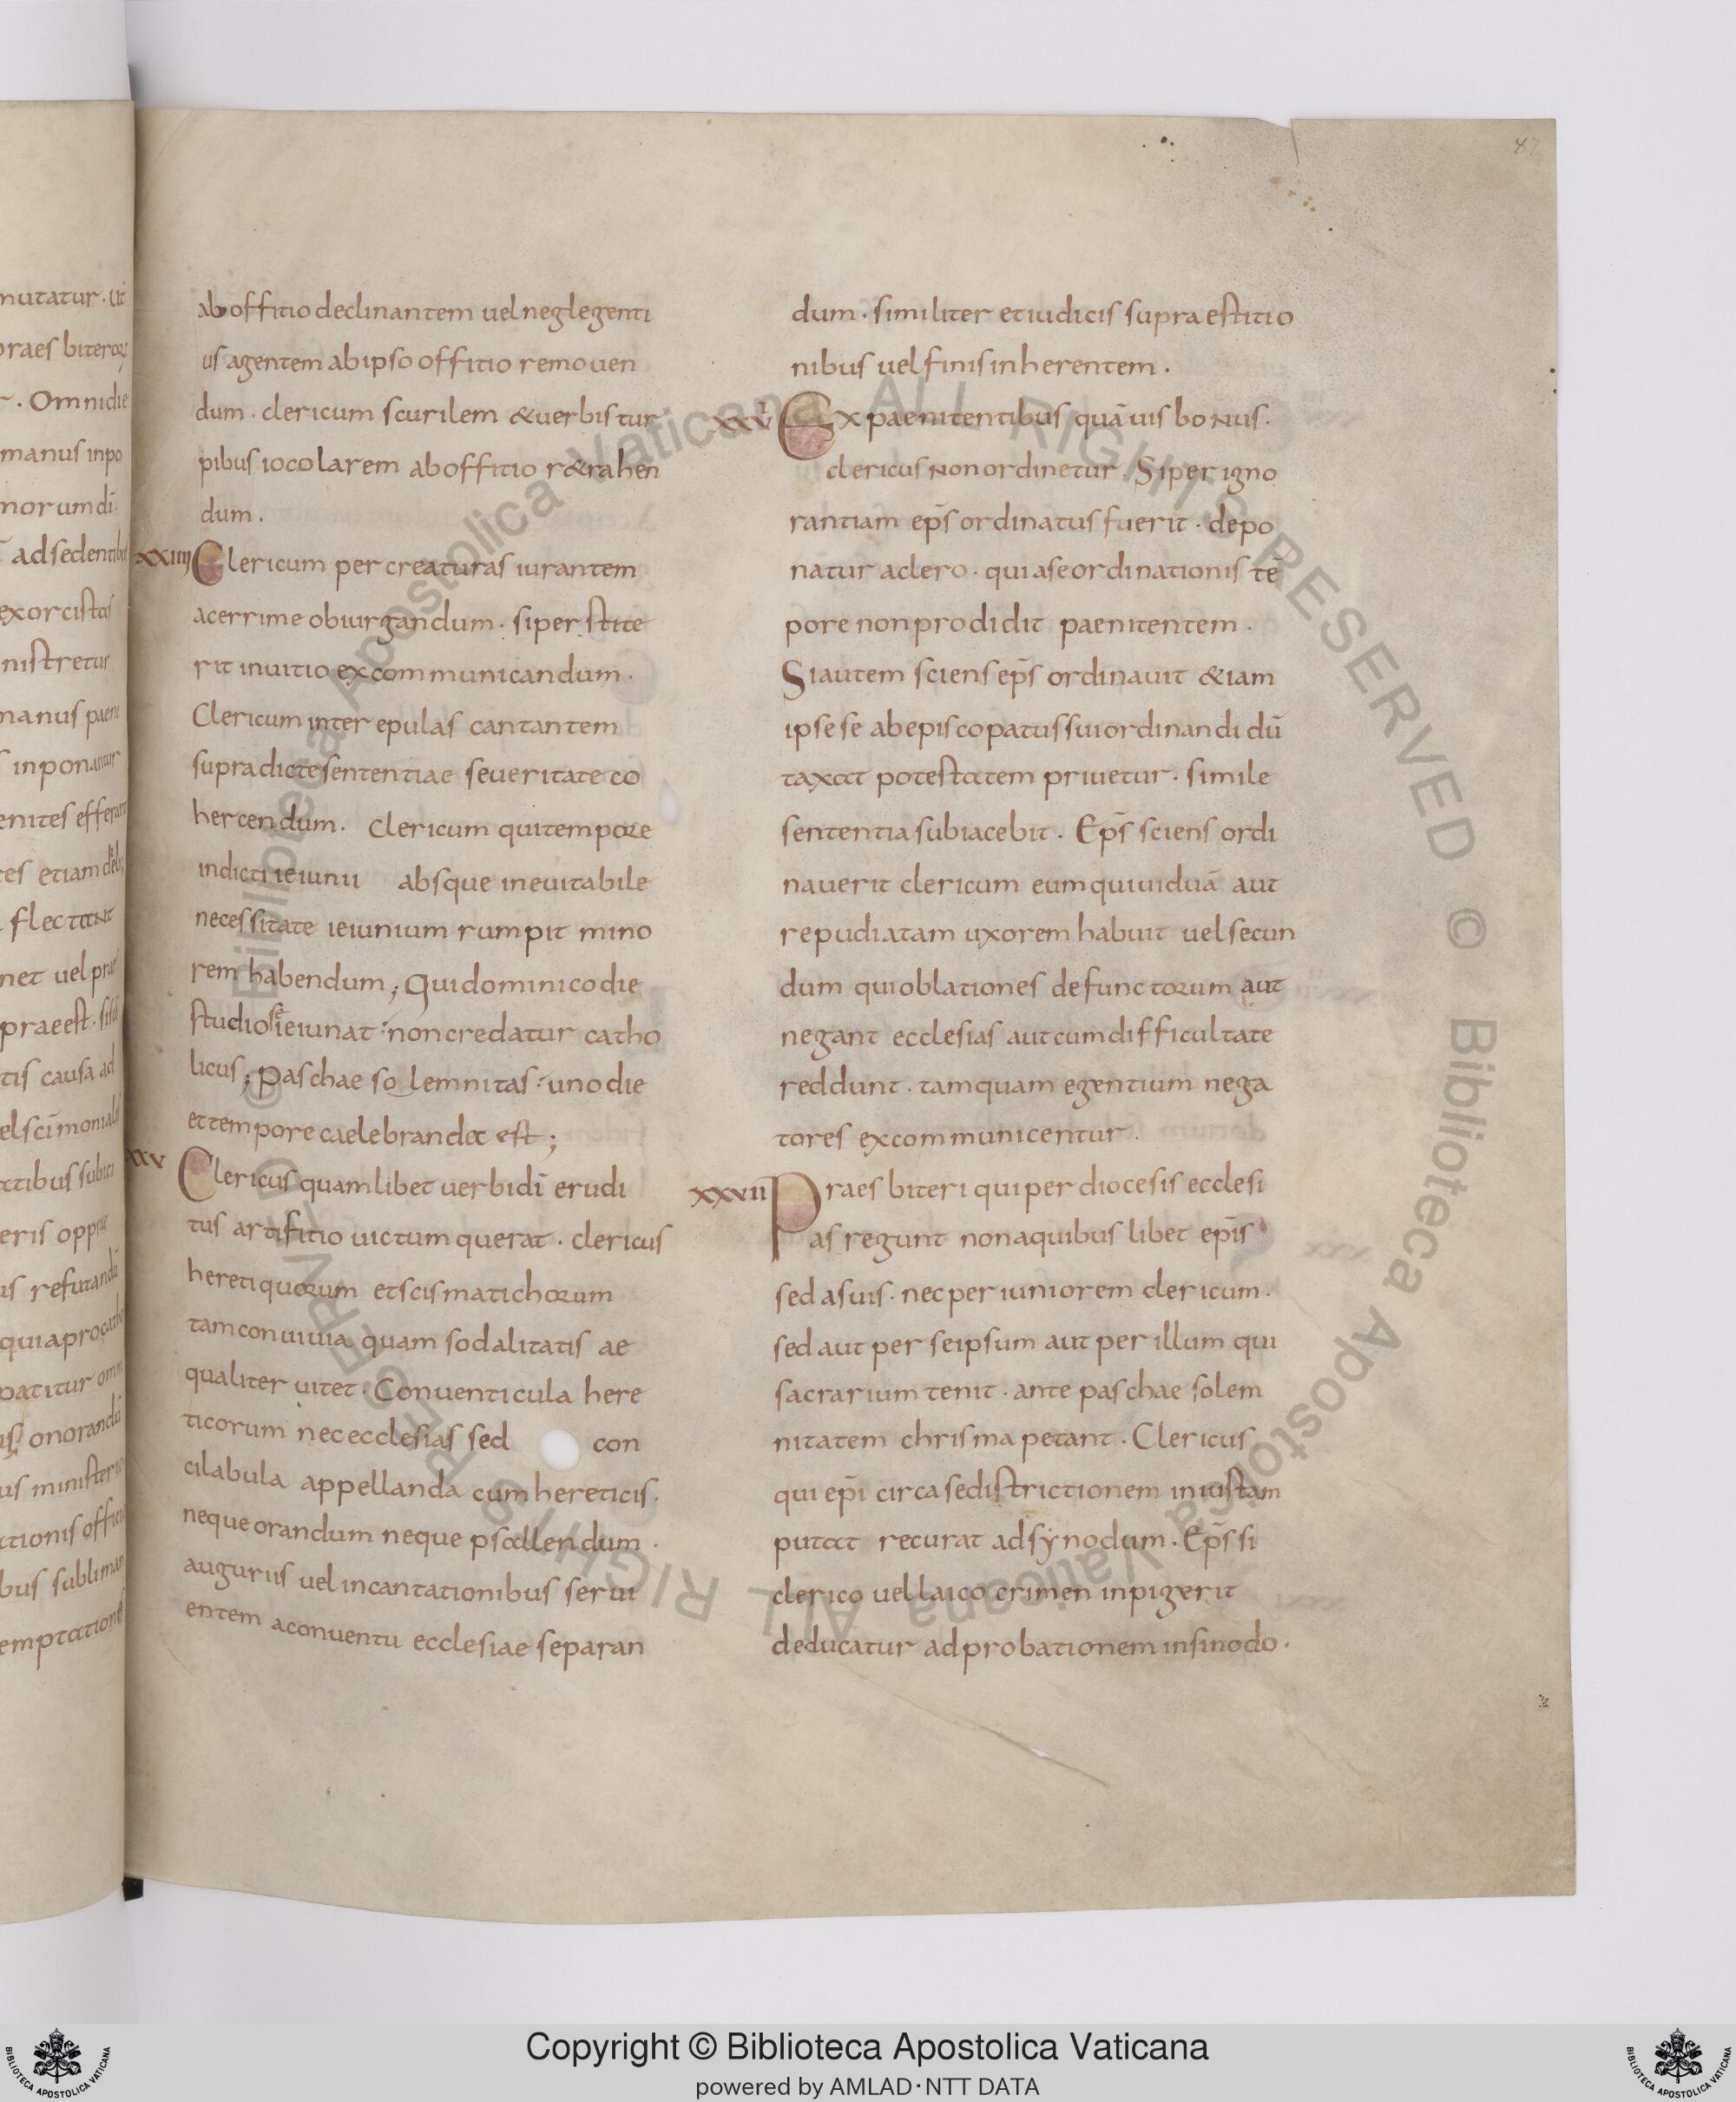 ab offitio declinantem uel neglegenti
us agentem ab ipso offitio remouen
dum · clericum scurilem & uerbis tur
pibus iocolarem ab offitio r&rahen
dum .
xxiiii Clericum per creaturas iurantem
acerrime obiurgandum · si perstite
rit in uitio excommunicandum ·
Clericum inter epulas cantantem
supradicte sententiae seueritate co
hercendum . Clericum qui tempore
indicti ieiunii absque ineuitabile
necessitate ieiunium rumpit mino
rem habendum ; Qui dominico die
studiose ieiunat · non credatur catho
licus ; Paschae solemnitas · uno die
et tempore caelebranda est ;
xxv Clericus quamlibet uerbi dī erudi
tus artifitio uictum querat · clericus
heretiquorum et scismatichorum
tam conuiuia quam sodalitatis ae
qualiter uitet · Conuenticula here
ticorum nec ecclesias sed con
cilabula appellanda cum hereticis ·
neque orandum neque psallendum ·
auguriis uel incantationibus serui
entem a conuentu ecclesiae separan
dum · similiter et iudicis supraestitio
nibus uel finis inherentem .
xxvi Ex paenitentibus quāuis bonus ·
clericus non ordinetur . Si per igno
rantiam ep̄s ordinatus fuerit · depo
natur a clero · quia se ordinationis tē
pore non prodidit paenitentem .
Si autem sciens ep̄s ordinauit &iam
ipse se ab episcopatus sui ordinandi dū
taxat potestatem priuetur · simile
sententia subiacebit . Ep̄s sciens ordi
nauerit clericum eum qui uiduā aut
repudiatam uxorem habuit uel secun
dum qui oblationes defunctorum aut
negant ecclesias aut cum difficultate
reddunt · tamquam egentium nega
tores excommunicentur .
xxvii Praesbiteri qui per diocesis ecclesi
as regunt non a quibuslibet ep̄is
sed a suis · nec per iuniorem clericum .
sed aut per seipsum aut per illum qui
sacrarium tenit · ante paschae solem
nitatem chrisma petant · Clericus
qui ep̄i circa se districtionem iniustam
putat recurat ad synodum · Ep̄s si
clerico uel laico crimen inpigerit
deducatur ad probationem in sinodo ·
Copyright © Biblioteca Apostolica Vaticana
powered by AMLAD·NTT DATA